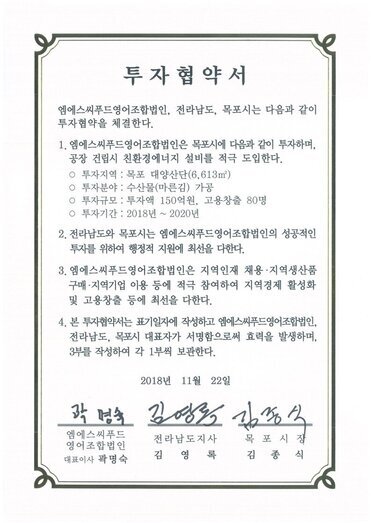 투자협약서
엠에스씨푸드영어조합법인, 전라남도, 목포시는 다음과 같이
투자협약을 체결한다.
1. 엠에스씨푸드영어조합법인은 목포시에 다음과 같이 투자하며,
공장 건립시 친환경에너지 설비를 적극 도입한다.
○ 투자지역 : 목포 대양산단(6,613㎡)
○ 투자분야 : 수산물(마른김) 가공
○ 투자규모 : 투자액 150억원, 고용창출 80명
○ 투자기간 : 2018년 ~ 2020년
2. 전라남도와 목포시는 엠에스씨푸드영어조합법인의 성공적인
투자를 위하여 행정적 지원에 최선을 다한다.
3. 엠에스씨푸드영어조합법인은 지역인재 채용·지역생산품
구매·지역기업 이용 등에 적극 참여하여 지역경제 활성화
및 고용창출 등에 최선을 다한다.
4. 본 투자협약서는 표기일자에 작성하고 엠에스씨푸드영어조합법인,
전라남도, 목포시 대표자가 서명함으로써 효력을 발생하며,
3부를 작성하여 각 1부씩 보관한다.
2018년 11월 22일
곽명숙 김영록 김종식
엠에스씨푸드
영어조합법인 전라남도지사 목포시장
대표이사 곽명숙 김영록 김종식